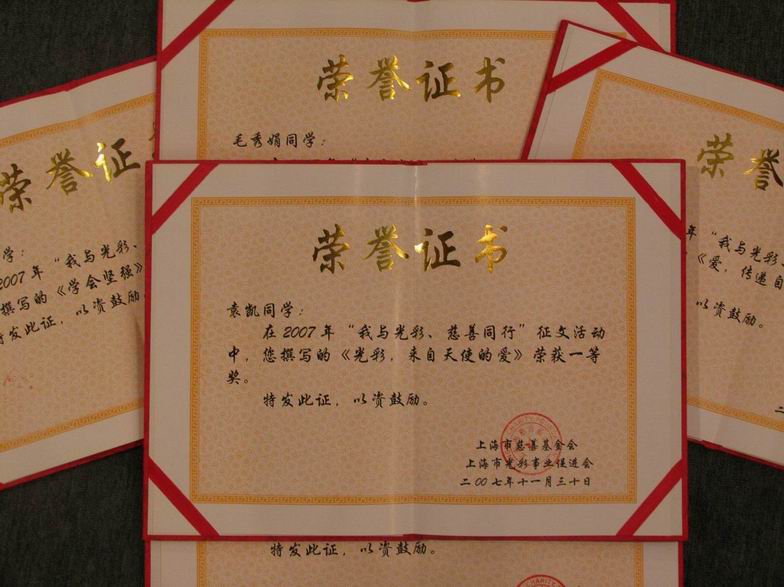 荣誉证书
毛秀娟同学：
荣誉证
学：
2007年“我与光彩、
撰写的《学会坚强》
特发此证，以资鼓励。
荣誉
年“我与光彩、
《爱，传递自
以资鼓励。
二
荣誉证书
袁凯同学：
在2007年“我与光彩、慈善同行”征文活动
中，您撰写的《光彩，来自天使的爱》荣获一等
奖。
特发此证，以资鼓励。
上海市慈善基金会
上海市光彩事业促进会
二00七年十一月三十日
特发此证，以资鼓励。